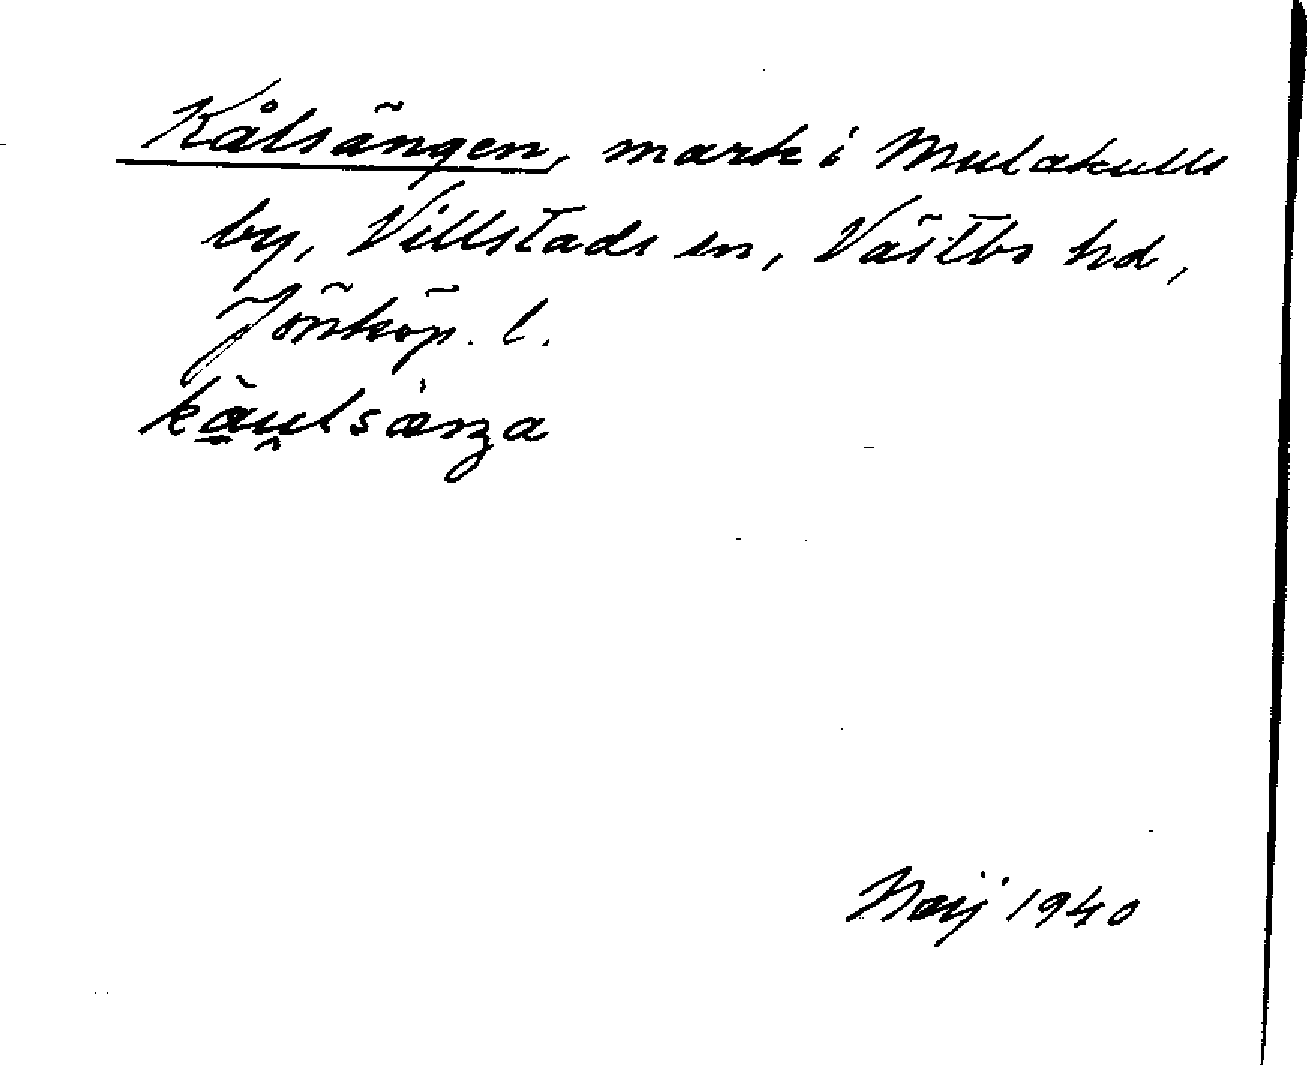 Kålsängen, mark i Mulakulls
by, Villstads sn, Västbo hd,
Jönköp. l.
Maj 1940